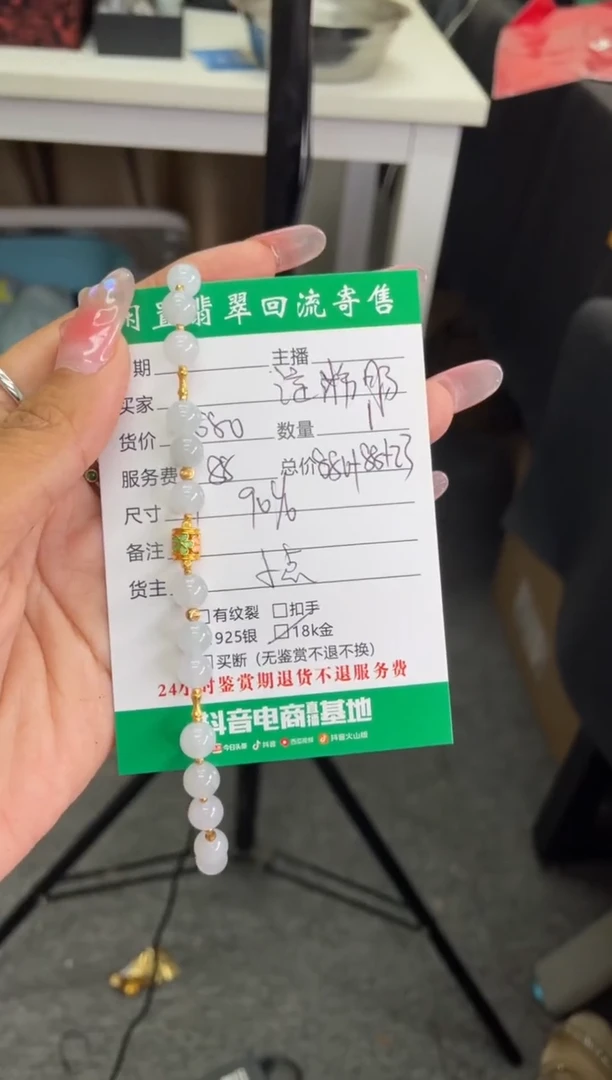 闲置翡翠回流寄售
期 主播
买家
货价 880 数量 1
服务费 88 总价 880+88+23
尺寸
备注
货主
有纹裂 扣手
925银 18k金
买断（无鉴赏不退不换）
24小时鉴赏期退货不退服务费
抖音电商直播基地
今日头条 抖音 西瓜视频 抖音火山版